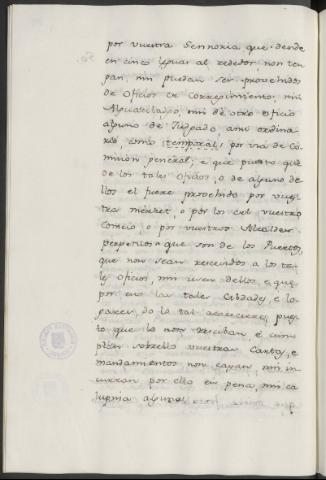 por vuestra Sennoria que desde
en cinco leguas al rededor, non ten
gan, nin puedan ser proveidos
de Oficios de Corregimiento, nin
Alguaciladgo, nin de otro Oficio
alguno de Juzgado, ansi ordina
rio, como temporal, por via de Co-
mision general; e que puesto que
de los tales Oficios, o de alguno de
llos el fuere proveido por vues
tra merzet, o por los del vuestro
Consejo o por vuestros Alcaldes
perpetuos que son de los Puertos,
que non sean recevidos a los ta-
les Oficios, nin usen dellos, e que
por las tales Cibdades, e lo-
gares, do lo tal acaesciere, pues
to que lo non resciban e cum
plan sobrello vuestras Cartas, e
mandamientos non cayan, nin in
curran por ello en pena, nin ca
lupnia alguna